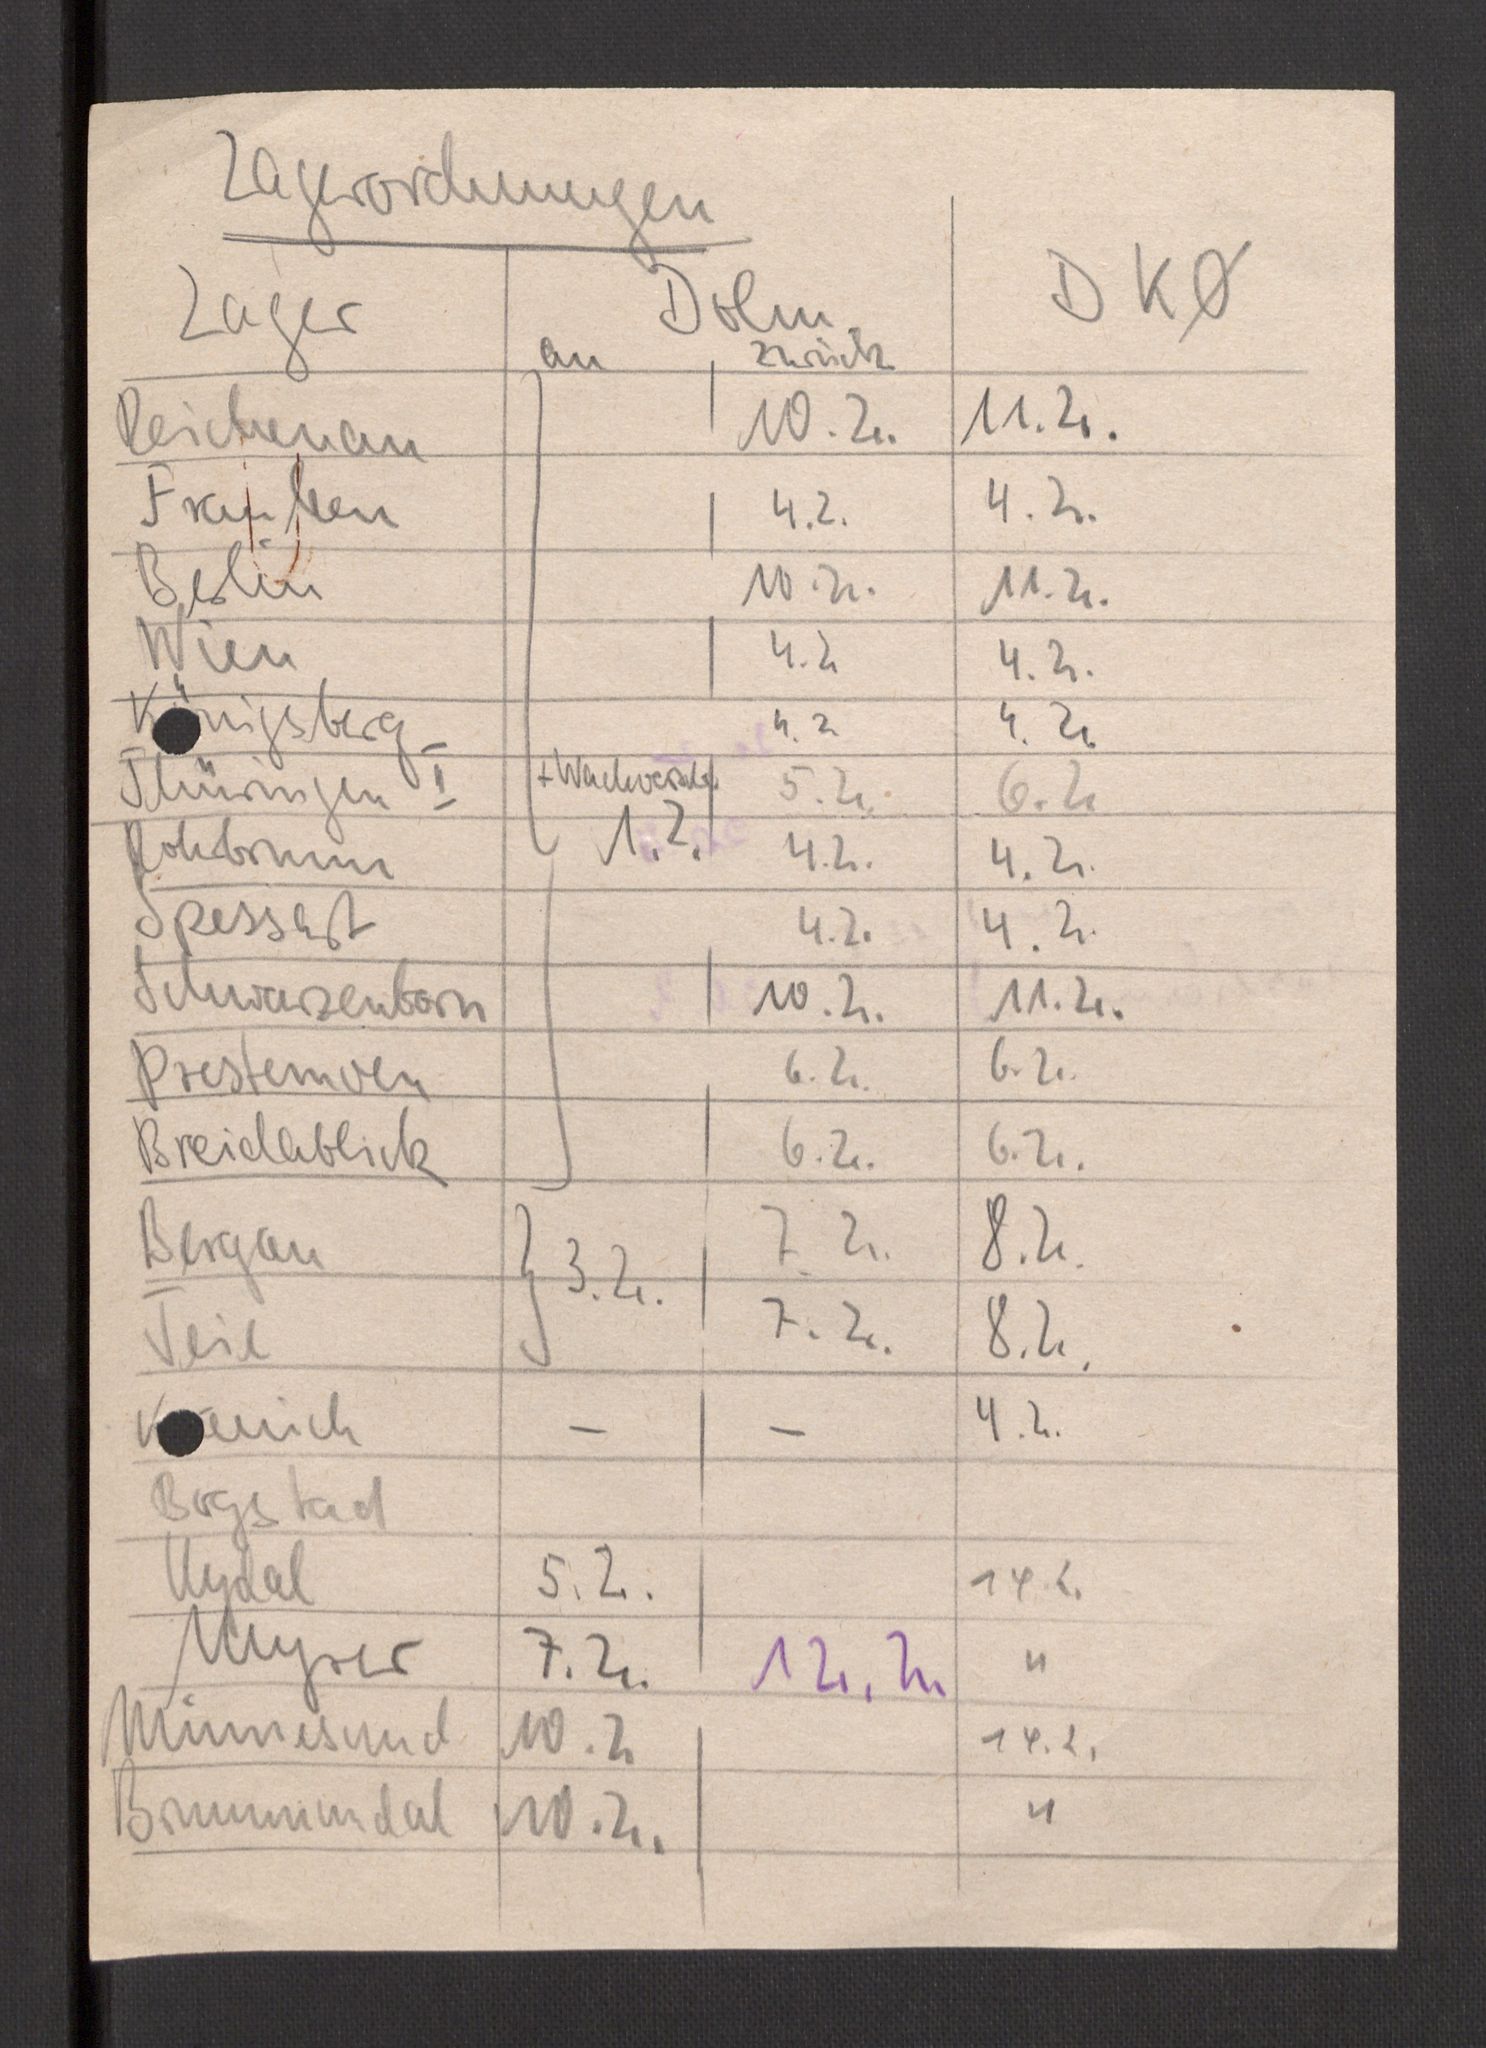 Lagerordnungen
Lager Dolm. DKØ
an zurück
Reichenau 10.2. 11.2.
Franken 4.2. 4.2.
Berlin 10.2. 11.2.
Wien 4.2 4.2.
Königsberg 4.2 4.2.
Thüringen II + Wachvorschr. 5.2. 6.2
1.2.
Rohrbrunn 4.2. 4.2.
Spessart 4.2. 4.2.
Schwarzenborn 10.2. 11.2.
Prestemoen 6.2. 6.2.
Breidablick 6.2. 6.2.
Bergan 7.2. 8.2.
3.2.
Teie 7.2. 8.2.
Kranich – – 4.2.
Bogstad
Nydal 5.2. 14.2.
Mysen 7.2. 12.2. "
Minnesund 10.2 14.2.
Brummundal 10.2. "